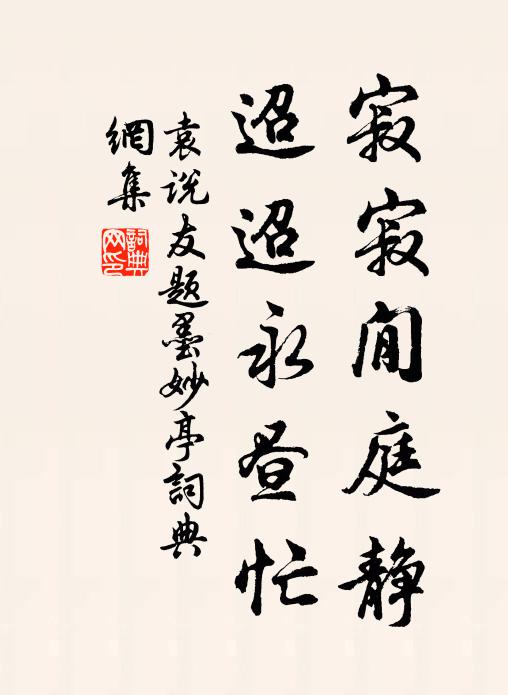 寂寂閒庭静
迢迢永昼忙
袁说友题墨妙亭詞典
網集
詞典网印